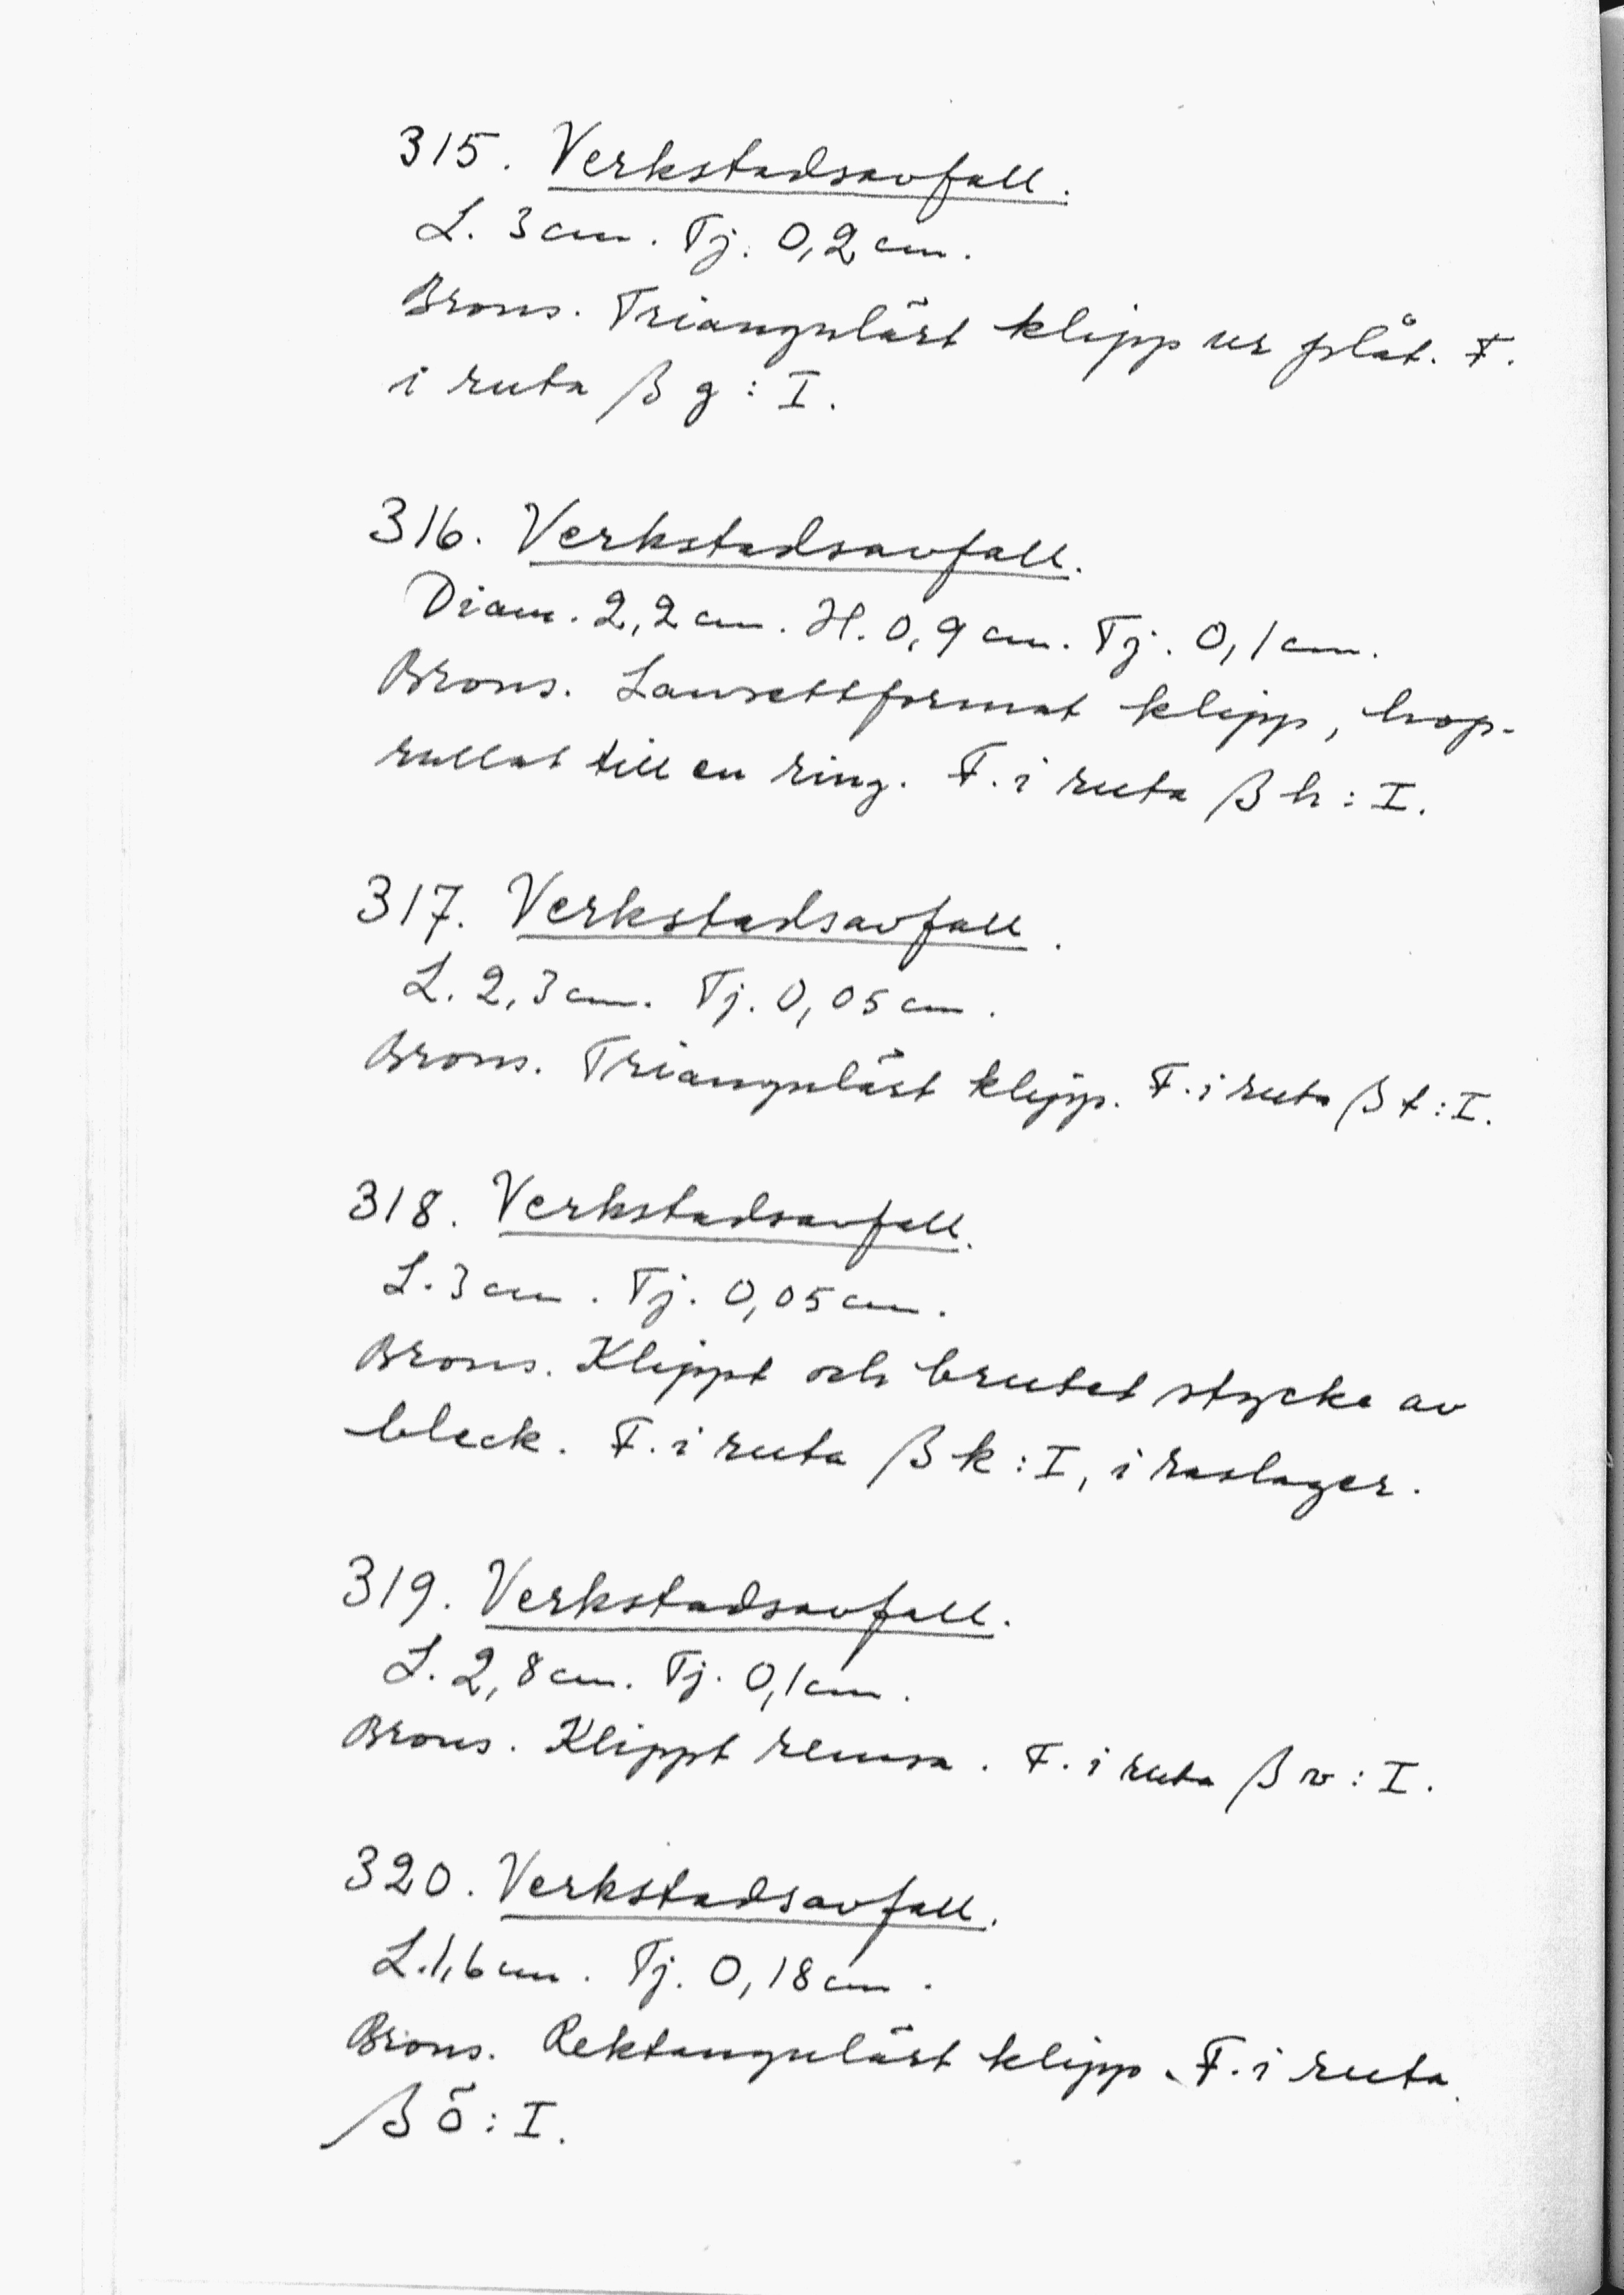 315. Verkstadsavfall.
L. 3 cm. Tj. 0,2 cm.
Brons. Triangulärt klipp ur plåt. F.
i ruta β g : I.
316. Verkstadsavfall.
Diam. 2,2 cm. H. 0,9 cm. Tj. 0,1 cm.
Brons. Lansettformat klipp, hop-
rullat till en ring. F. i ruta β h : I.
317. Verkstadsavfall.
L. 2,3 cm. Tj. 0,05 cm.
Brons. Triangulärt klipp. F. i ruta β t : I.
318. Verkstadsavfall.
L. 3 cm. Tj. 0,05 cm.
Brons. Klippt och brutet stycke av
bleck. F. i ruta β k : I, i raslager.
319. Verkstadsavfall.
L. 2,8 cm. Tj. 0,1 cm.
Brons. Klippt remsa. F. i ruta β v : I.
320. Verkstadsavfall.
L. 1,6 cm. Tj. 0,18 cm.
Brons. Rektangulärt klipp. F. i ruta
β ö : I.